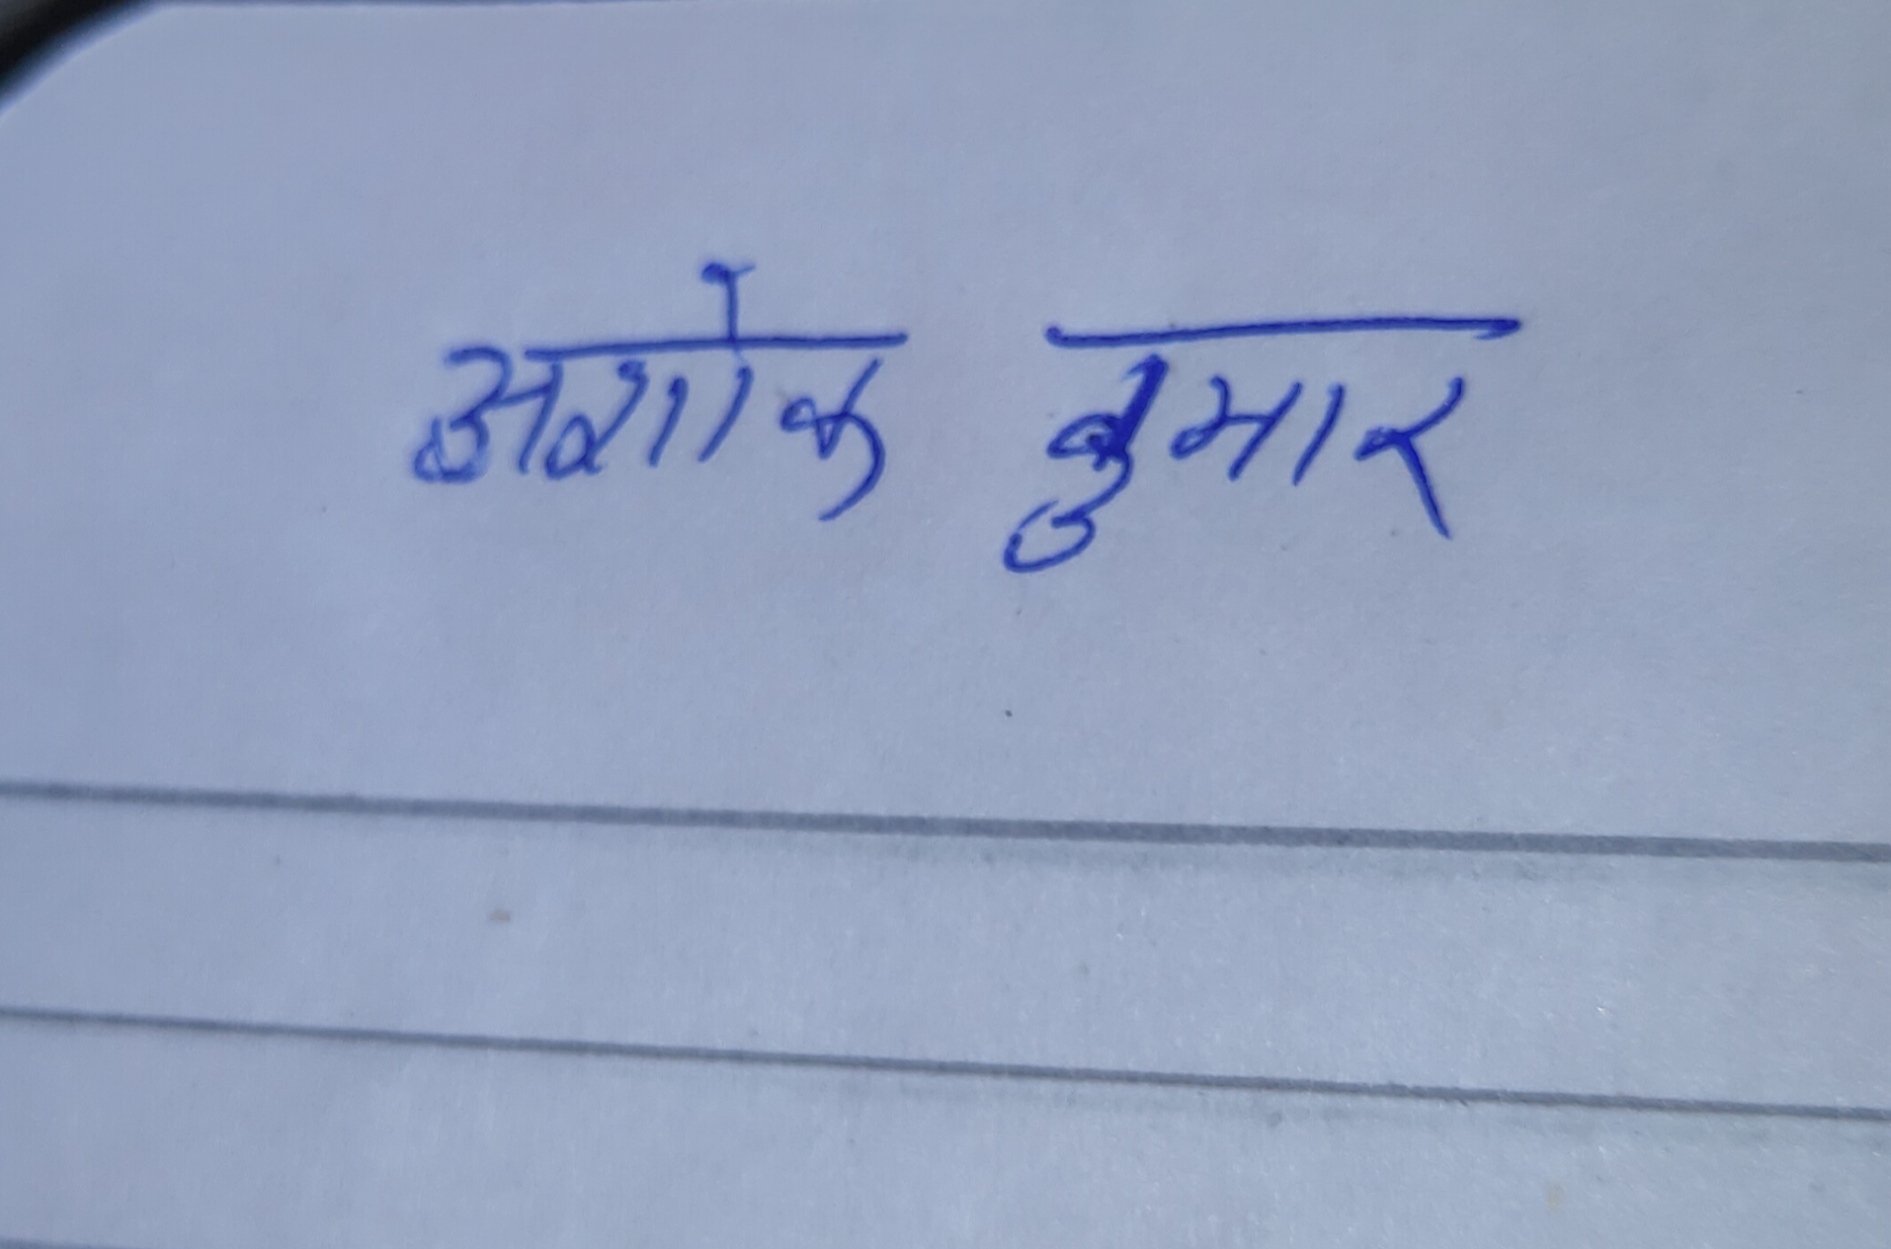 अशोक कुमार